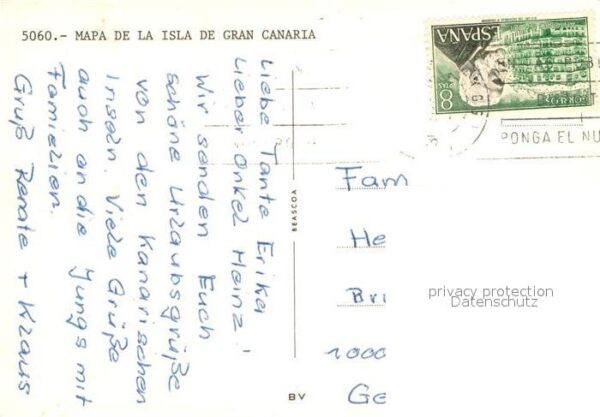 5060.- MAPA DE LA ISLA DE GRAN CANARIA
Liebe Tante Erika
Lieber Onkel Heinz!
Wir senden Euch
schöne Urlaubsgrüße
von den Kanarischen
Inseln. Viele Grüße
auch an die Jungs mit
Familien.
Gruß Renate + Klaus
BEASCOA
BV
ESPAÑA
8
PTAS
CORREOS
PONGA EL NU
Fam
He
Bri
1000
Ge
privacy protection
Datenschutz